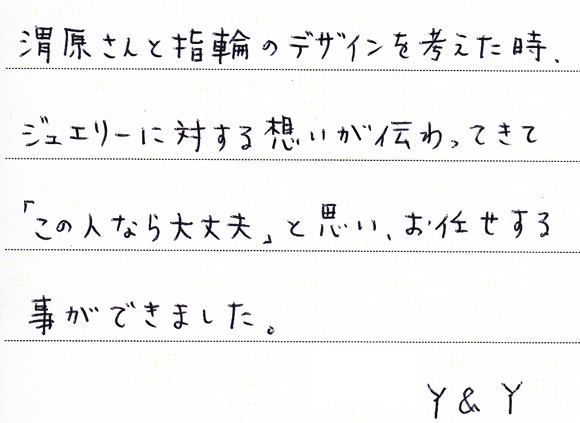 渭原さんと指輪のデザインを考えた時、
ジュエリーに対する想いが伝わってきて
「この人なら大丈夫」と思い、お任せする
事ができました。
Y & Y